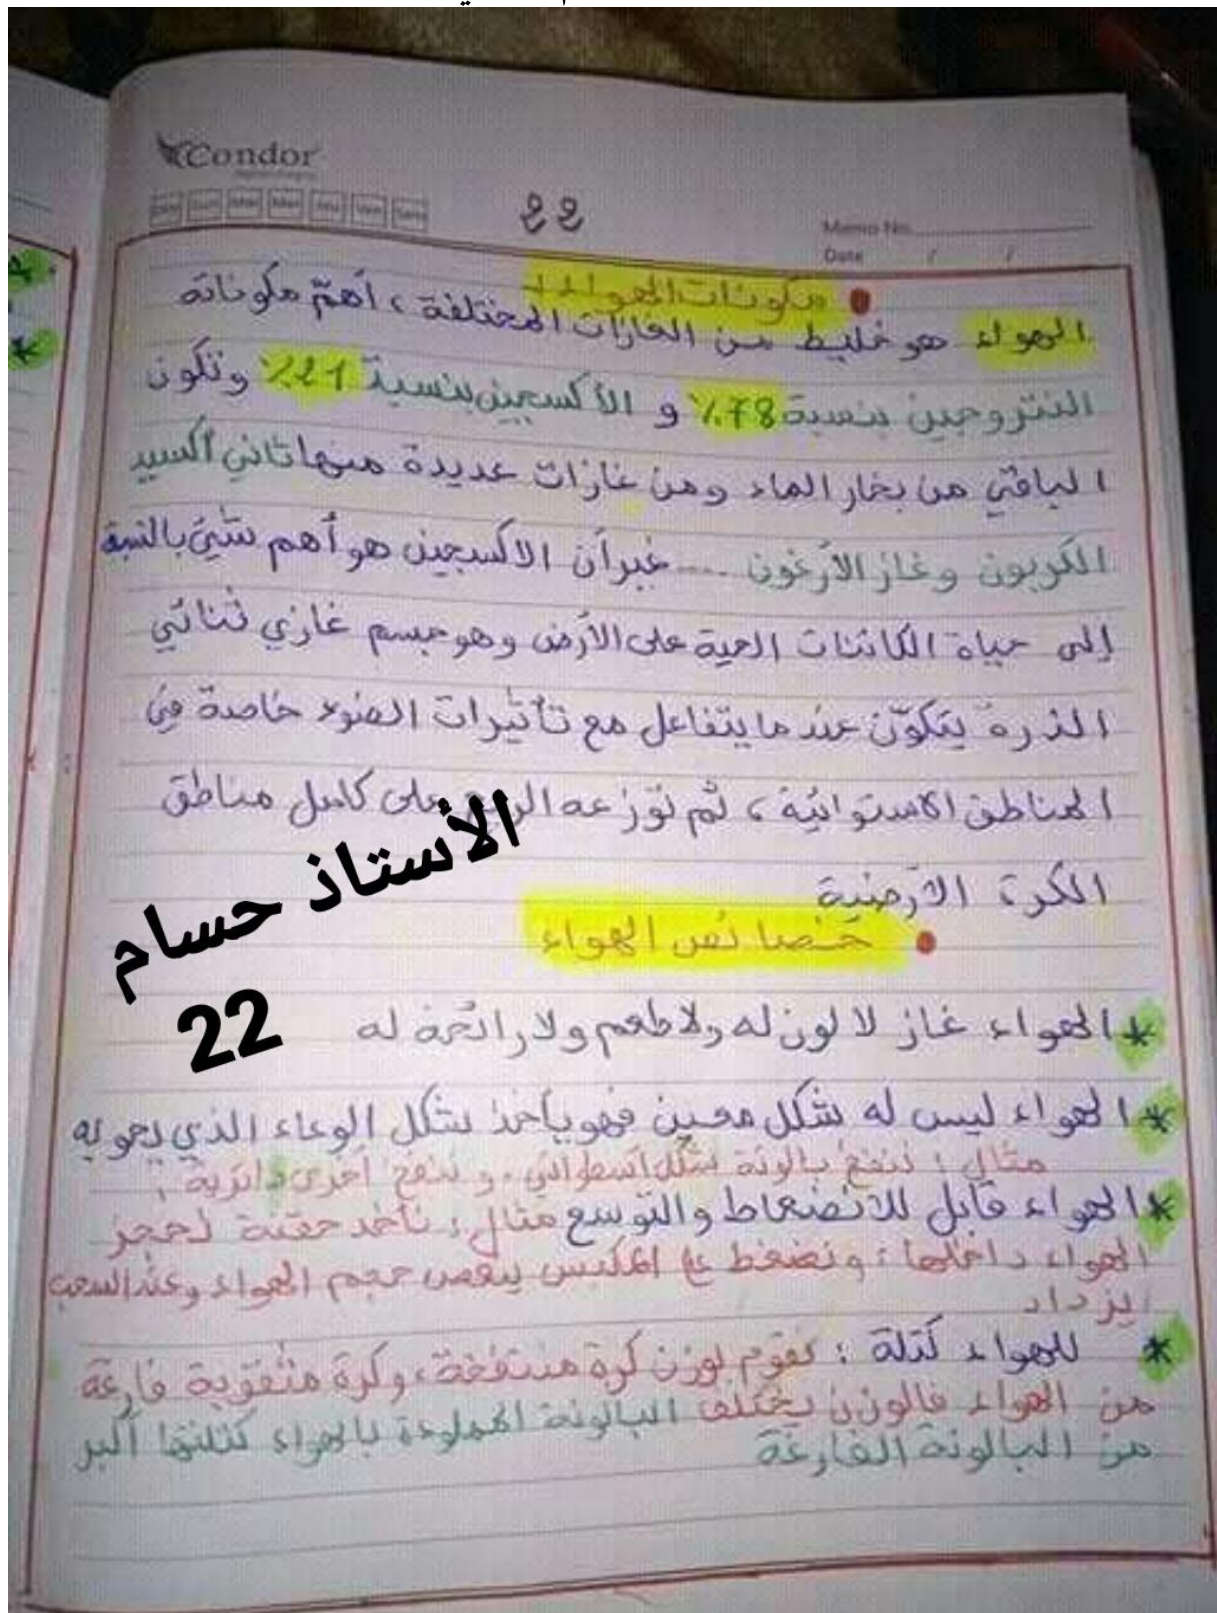 Condor
22
Memo No.
Date / /
مكونات الهواء
الهواء هو خليط من الغازات المختلفة ، أهمّ مكوناته
النتروجين بنسبة 78٪ و الأكسجين بنسبة 21٪ وتكون
الباقي من بخار الماء ومن غازات عديدة منها ثاني أكسيد
الكربون وغاز الأرغون .... غير أن الاكسجين هو أهم شيئ بالنسبة
إلى حياة الكائنات الحية على الأرض وهو جسم غازي ثنائي
الذرة يتكوّن عندما يتفاعل مع تأثيرات الضوء خاصة في
المناطق الاستوائية ، ثم توزعه الرياح على كامل مناطق
الكرة الأرضية
الأستاذ حسام
22
خصائص الهواء
* الهواء غاز لا لون له ولا طعم ولا رائحة له
* الهواء ليس له شكل معين فهو يأخذ شكل الوعاء الذي يحويه
مثال : ننفخ بالونة بشكل أسطواني و ننفخ أخرى دائرية .
* الهواء قابل للانضغاط والتوسع مثال : نأخذ حقنة لحجز
الهواء داخلها ، ونضغط على المكبس ينقص حجم الهواء وعند السحب
يزداد
* للهواء كتلة : نقوم بوزن كرة منتفخة ، وكرة مثقوبة فارغة
من الهواء فالوزن يختلف البالونة المملوءة بالهواء كتلتها أكبر
من البالونة الفارغة